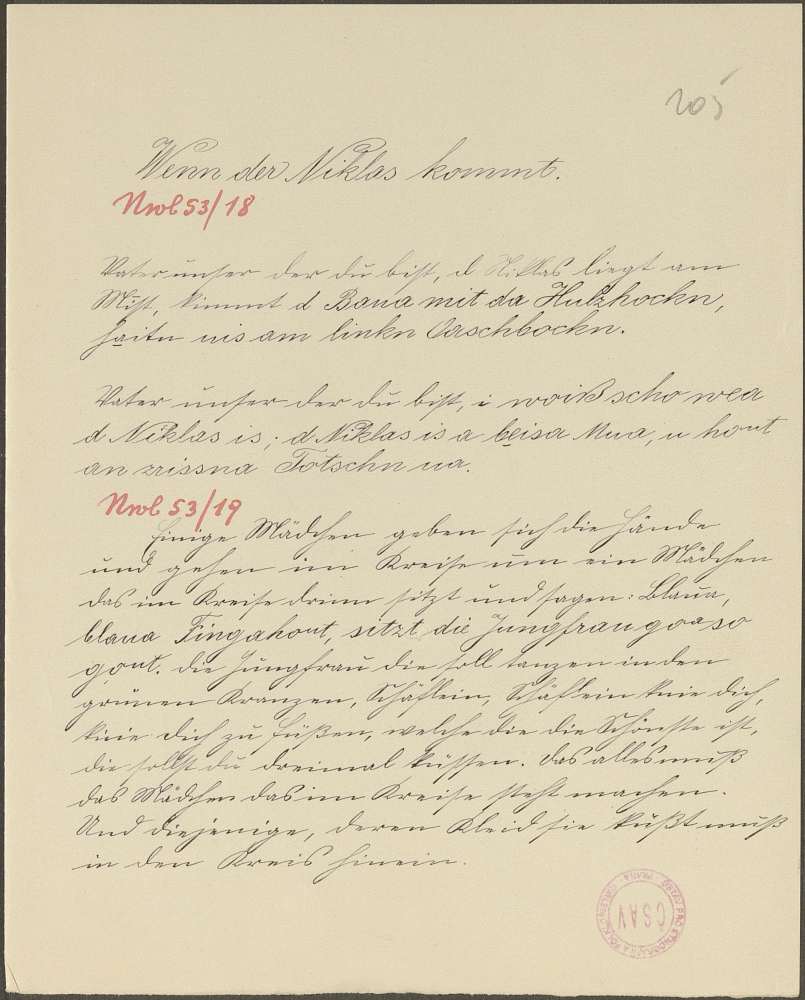 205
Wenn der Niklas kommt.
Nwb 53/18
Vater unser der du bist, d Niklas liegt am
Mist, kimmt d Baua mit da Hulzhockn,
haitn nis am linkn Oaschbockn.
Vater unser der du bist, i woiß scho wea
d Niklas is; d Niklas is a beisa Mua, u hout
an zrissna Totschn ua.
Nwb 53/19
Einige Mädchen geben sich die Hände
und gehen im Kreise um ein Mädchen
das im Kreise drinn sitzt und sagen: Blaua,
blaua Fingahout, sitzt die Jungfrau goa so
gout. die Jungfrau die soll tanzen in den
grünen Kranzen, Schäflein, Schäflein knie dich,
knie dich zu Füßen, welche die die Schönste ist,
die sollst du dreimal küssen. Das alles muß
das Mädchen das im Kreise steht machen.
Und diejenige, deren Kleid sie küßt muß
in den Kreis hinein.
ČSAV